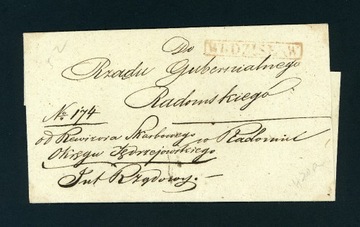 Do
WŁODZISŁAW
Rządu Gubernialnego
Radomskiego
No 174
od Rewizora Skarbowego w Radomiu
Okręgu Jędrzejowskiego
Int. Rządowy.